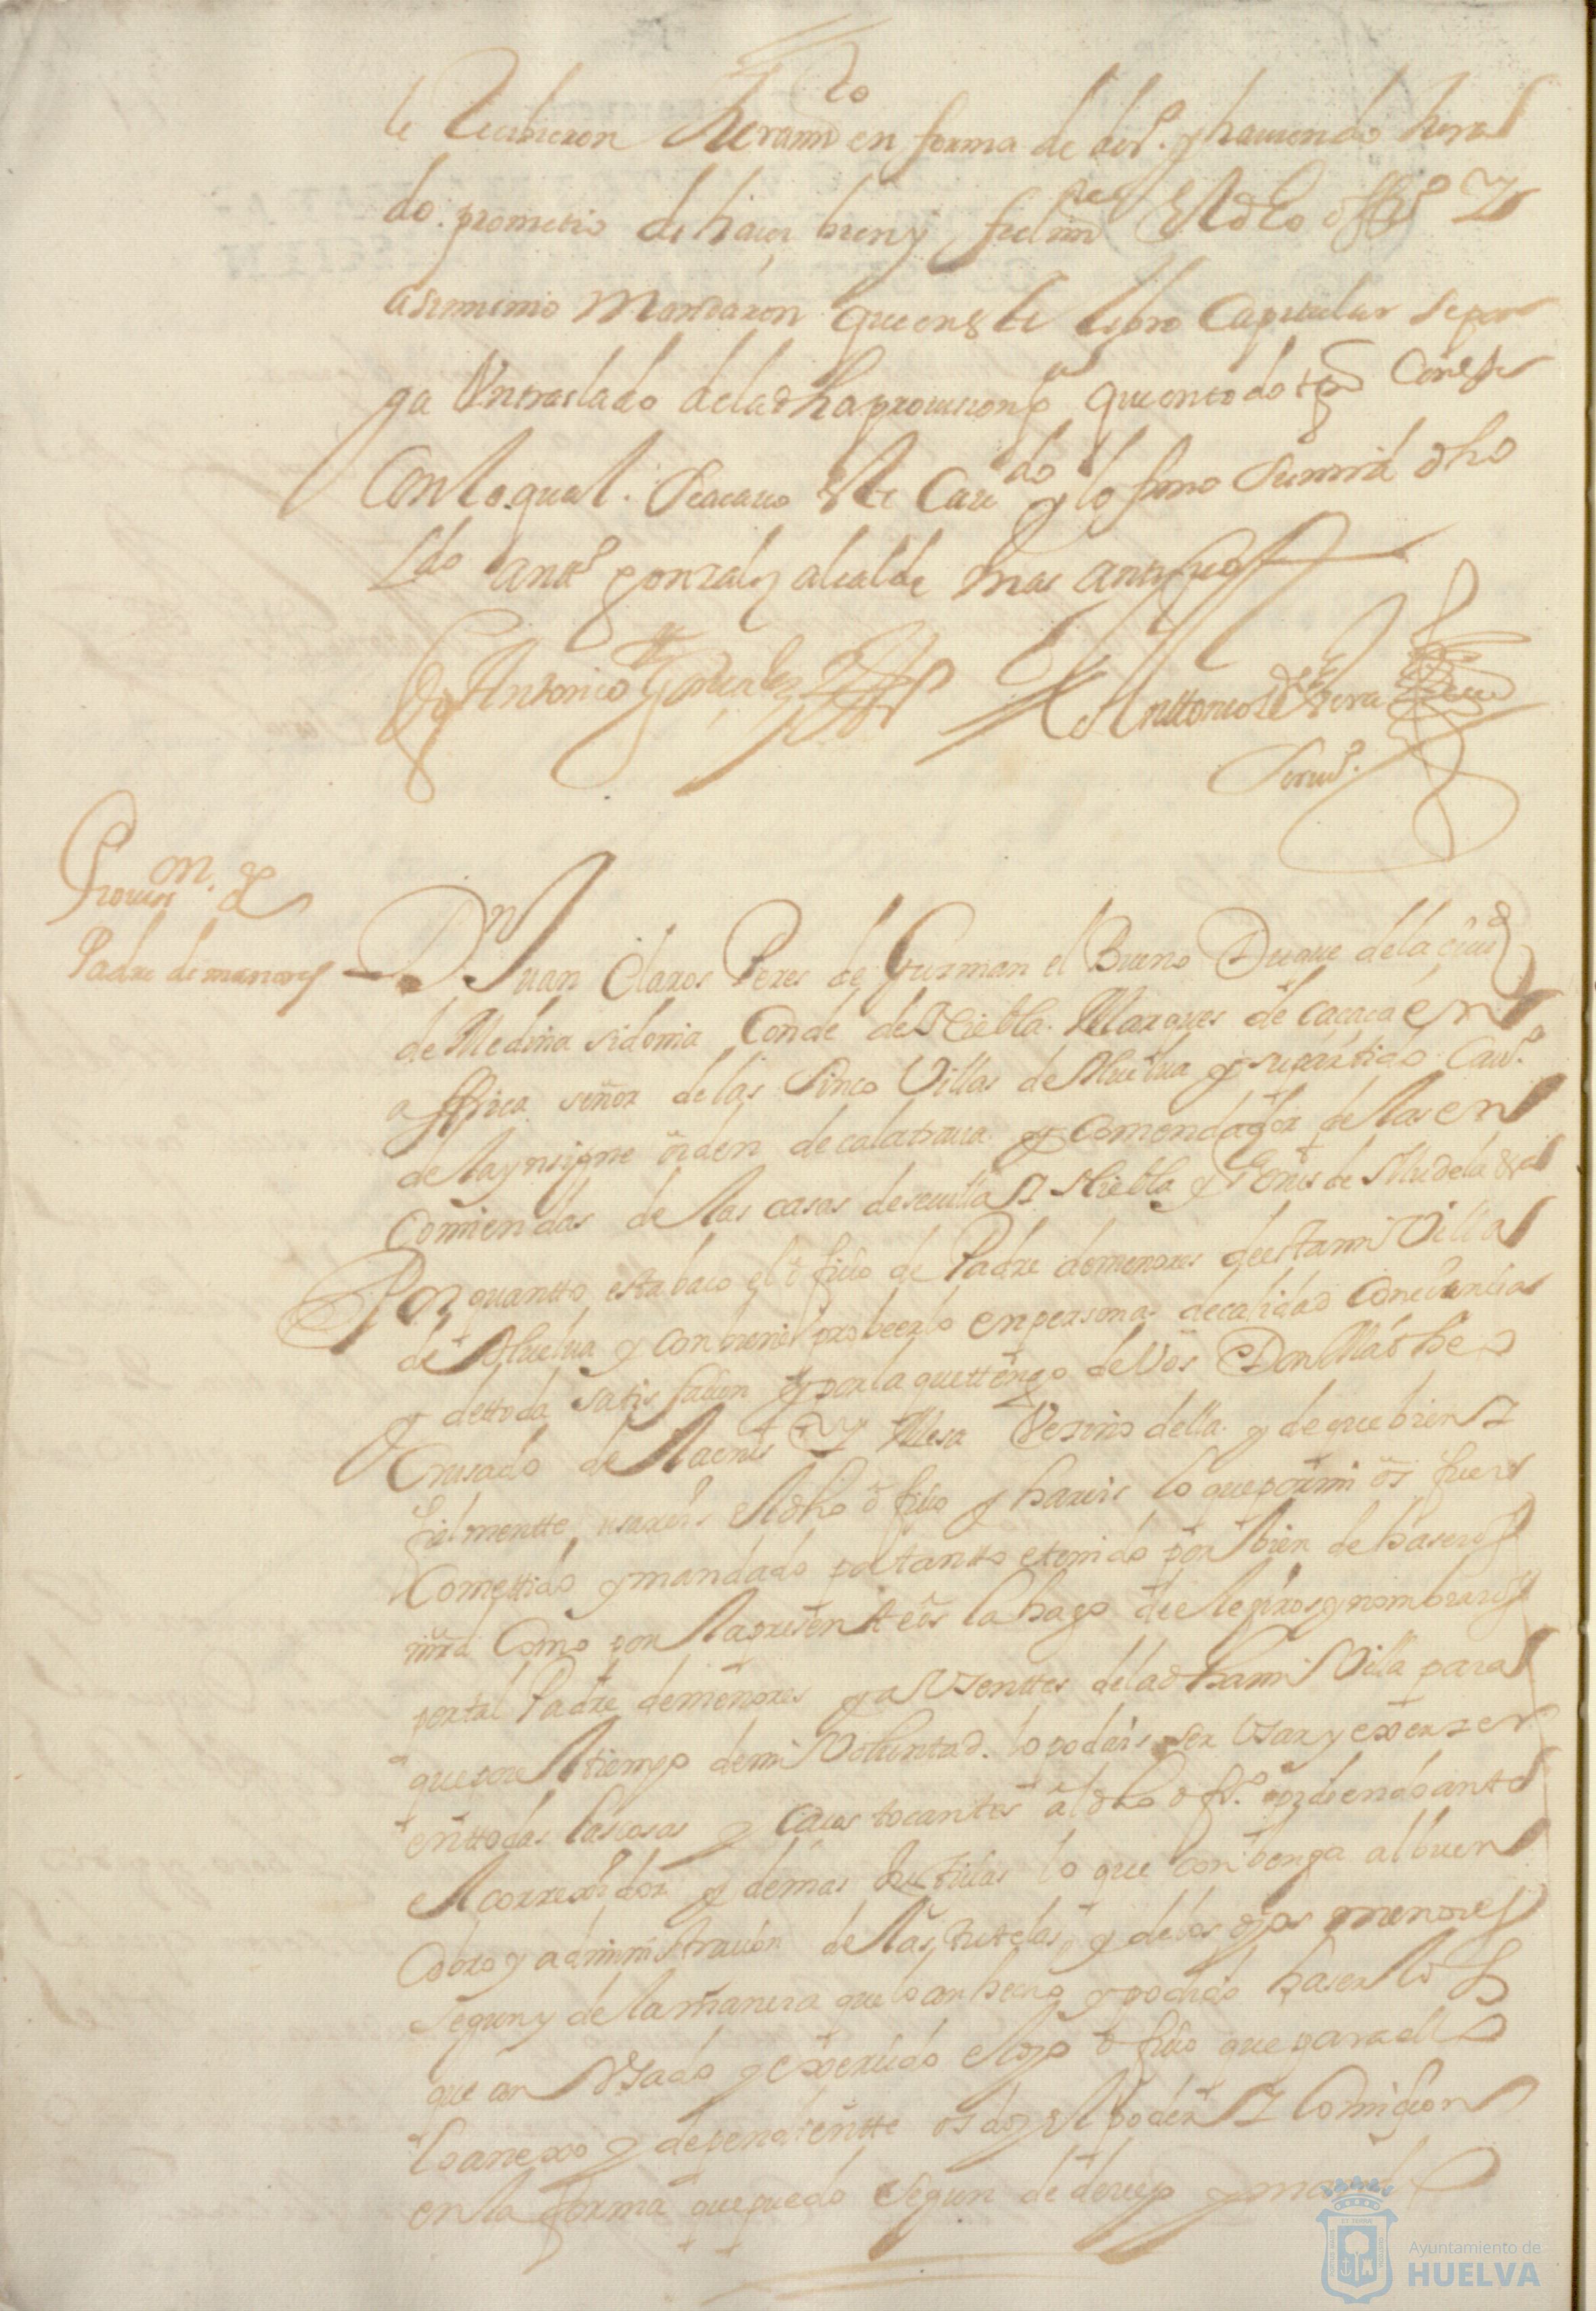 le recibieron Juramto en forma de dro. y hauiendo Jura
do prometio de hacer bien y fielmte el dho offo. Y
asimismo Mandaron que en este libro Capitular se pon
ga Vn traslado de la dha prouision pa que en todo tpo Conste
Con lo qual. Se acauo este Caudo y lo firmo Su mrd dho
Ldo anto gonzales alcalde mas antiguo
Ldo Antonio Gonzales
Anttonio de
Scriuo.
Prouison. de
Padre de menores
Dn Juan Claros Peres de Guzman el Bueno Duque de la ciud
de Medina sidonia Conde de Niebla. Marques de Cacaca en
affrica señor de las Sinco Villas de Huelua y su partido Cauo.
de la ynsigne orden de calatraua y Comendador de las en
Comiendas de las casas de seuilla Y Niebla y de Mudela &a
Por quantto esta baco el ofisio de Padre de menores de esta mi Villa
de Huelua y conbiene probeerlo en persona de calidad Conciencia
y de ttoda satisfacion y por la que ttengo de Vos Don
Crusado de la Y Mesa Vezino della y de que bien Y
fielmentte usareis el dho ofisio y hareis lo que por mi os fuere
Comettido y mandado por tantto e tenido por bien de haseros
mrd Como por la presente os la hago de elejiros y nombraros
por tal Padre de menores y ausenttes de la dha mi Villa para
que por el tiempo de mi Voluntad. lo podais ser Usar y exerzer
en ttodas las cosas y casos tocantes al dho ofo. pidiendo ante
el correxidor y demas Justisias lo que conbenga al buen
Cobro y administracion de las tutelas y de los dhos menores
segun y de la manera que lo an hecho y podido haser los
que an Usado y exersido el dho ofisio que para ello
lo anexo y dependientte os doy el poder Y Comision
en la forma que puedo segun de derecho y mando
Ayuntamiento de
HUELVA